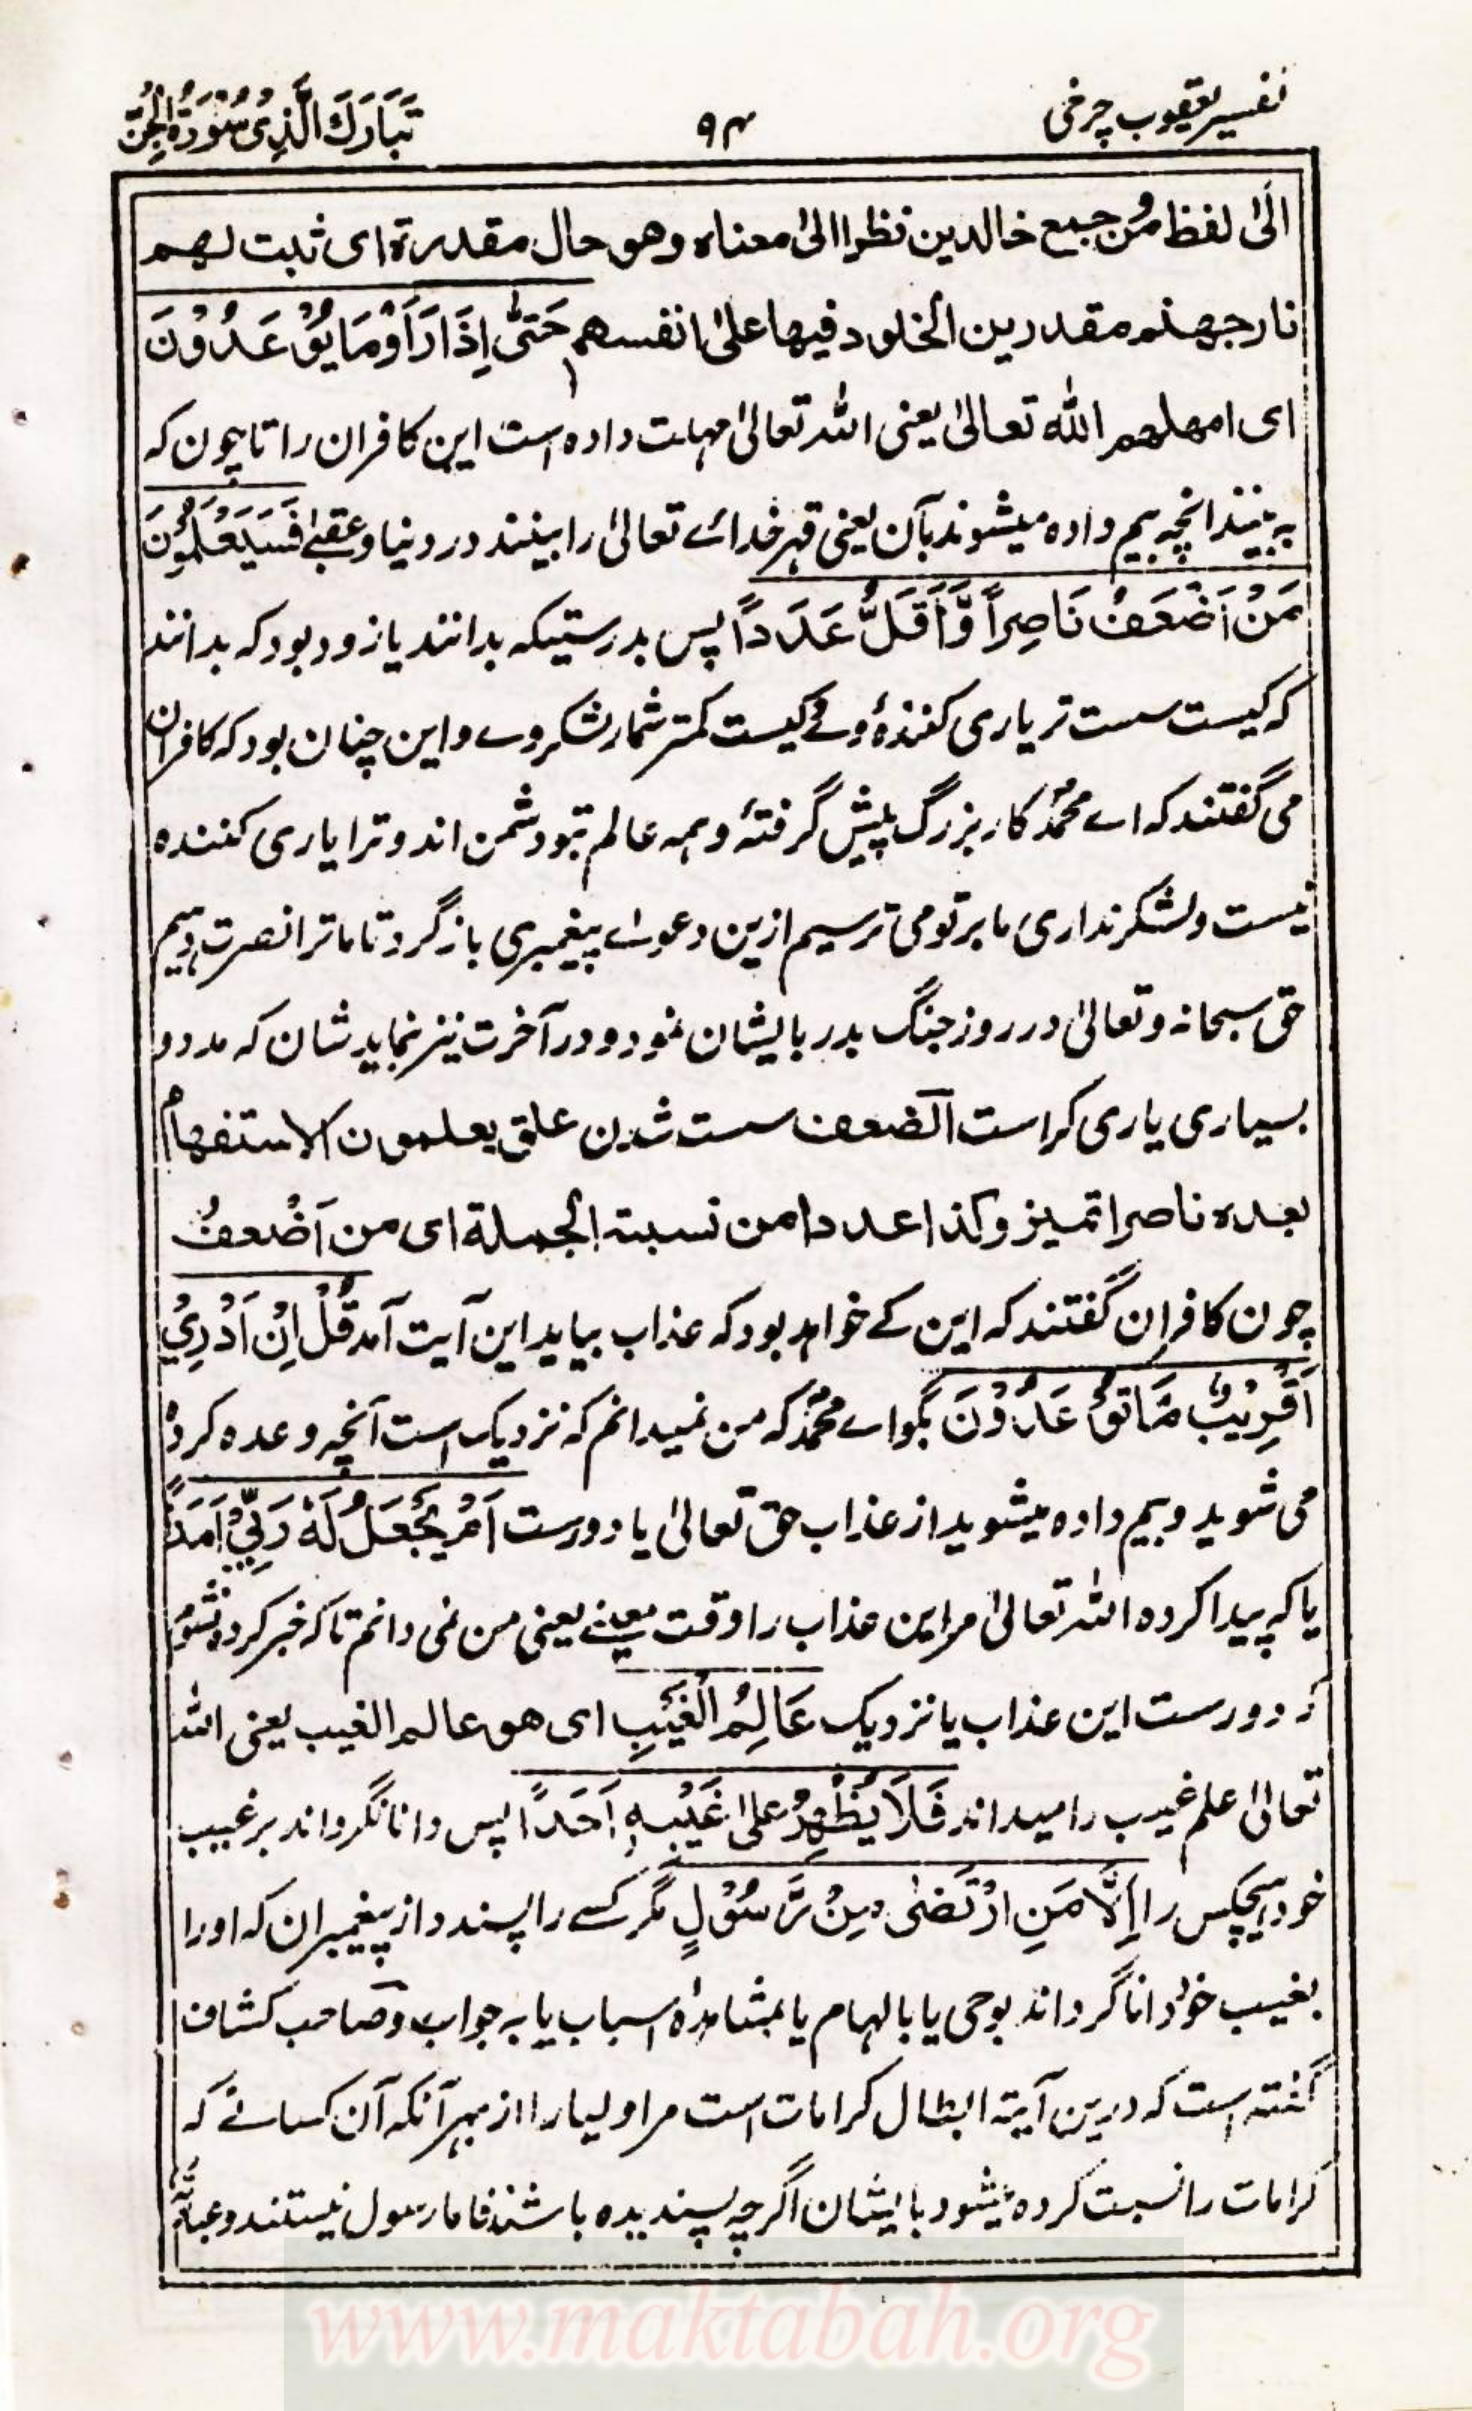 تفسیر یعقوب چرخی ۹۴ تَبَارَكَ الَّذِیْ سُوْرَةُ الْجِنّ
الیٰ لفظ مَن جمیع خالدین نظرا الیٰ معناه وهو حال مقدرة ای ثبت لهم
نار جهنم مقدرین الخلود فیها علیٰ انفسهم حَتّٰی اِذَا رَاَوْا مَا یُوْعَدُوْنَ
ای امهلهم اللّٰه تعالیٰ یعنی اللّٰه تعالیٰ مہلت داده است این کافران را تا چون که
به بینند انچه بیم داده میشوند بآن یعنی قہر خدائے تعالیٰ را بینند در دنیا و عقبےٰ فَسَیَعْلَمُوْنَ
مَنْ اَضْعَفُ نَاصِراً وَّاَقَلُّ عَدَداً پس بدرستیکه بدانند یا زود بود که بدانند
که کیست سست تر یاری کننده وے کیست کمتر شمار لشکر وے و این چنان بود که کافران
می گفتند که اے محمدؐ کار بزرگ پیش گرفتهٔ و همه عالم بتو دشمن اند و ترا یاری کننده
نیست و لشکر نداری ما بر تو می ترسیم ازین دعوے پیغمبری باز گرد تا ما ترا نصرت دہیم
حق سبحانه و تعالیٰ در روز جنگ بدر بایشان نمود و در آخرت نیز نماید شان که مدد و
بسیاری یاری کراست الضعف سست شدن علق یعلمون الاستفهام
بعده ناصرا تمیز و کذا عددا من نسبة الجملة ای من اَضْعفُ
چون کافران گفتند که این کے خواهد بود که عذاب بیاید این آیت آمد قُلْ اِنْ اَدْرِیْ
اَقَرِیْبٌ مَّا تُوْعَدُوْنَ بگو اے محمدؐ که من نمیدانم که نزدیک است آنچه وعده کرده
می شوید و بیم داده میشوید از عذاب حق تعالیٰ یا دورست اَمْ یَجْعَلُ لَهٗ رَبِّیْ اَمَدًا
یا که پیدا کرده اللّٰه تعالیٰ مر این عذاب را وقت معینے یعنی من نمی دانم تا که خبر کرده نشوم
که دورست این عذاب یا نزدیک عَالِمُ الْغَیْبِ ای هو عالم الغیب یعنی اللّٰه
تعالیٰ علم غیب را میداند فَلَا یُظْهِرُ عَلیٰ غَیْبِهٖ اَحَدًا پس دانا نگرداند بر غیب
خود هیچکس را اِلَّا مَنِ ارْتَضٰی مِنْ رَّسُوْلٍ مگر کسے را پسندد از پیغمبران که او را
بغیب خود دانا گرداند بوحی یا بالہام یا بمشاہدۂ اسباب یا به جواب و صاحب کشاف
گفته است که درین آیة ابطال کرامات است مر اولیا را از بہر آنکه آن کسانے که
کرامات را نسبت کرده میشود بایشان اگرچه پسندیده باشند فاما رسول نیستند و
www.maktabah.org